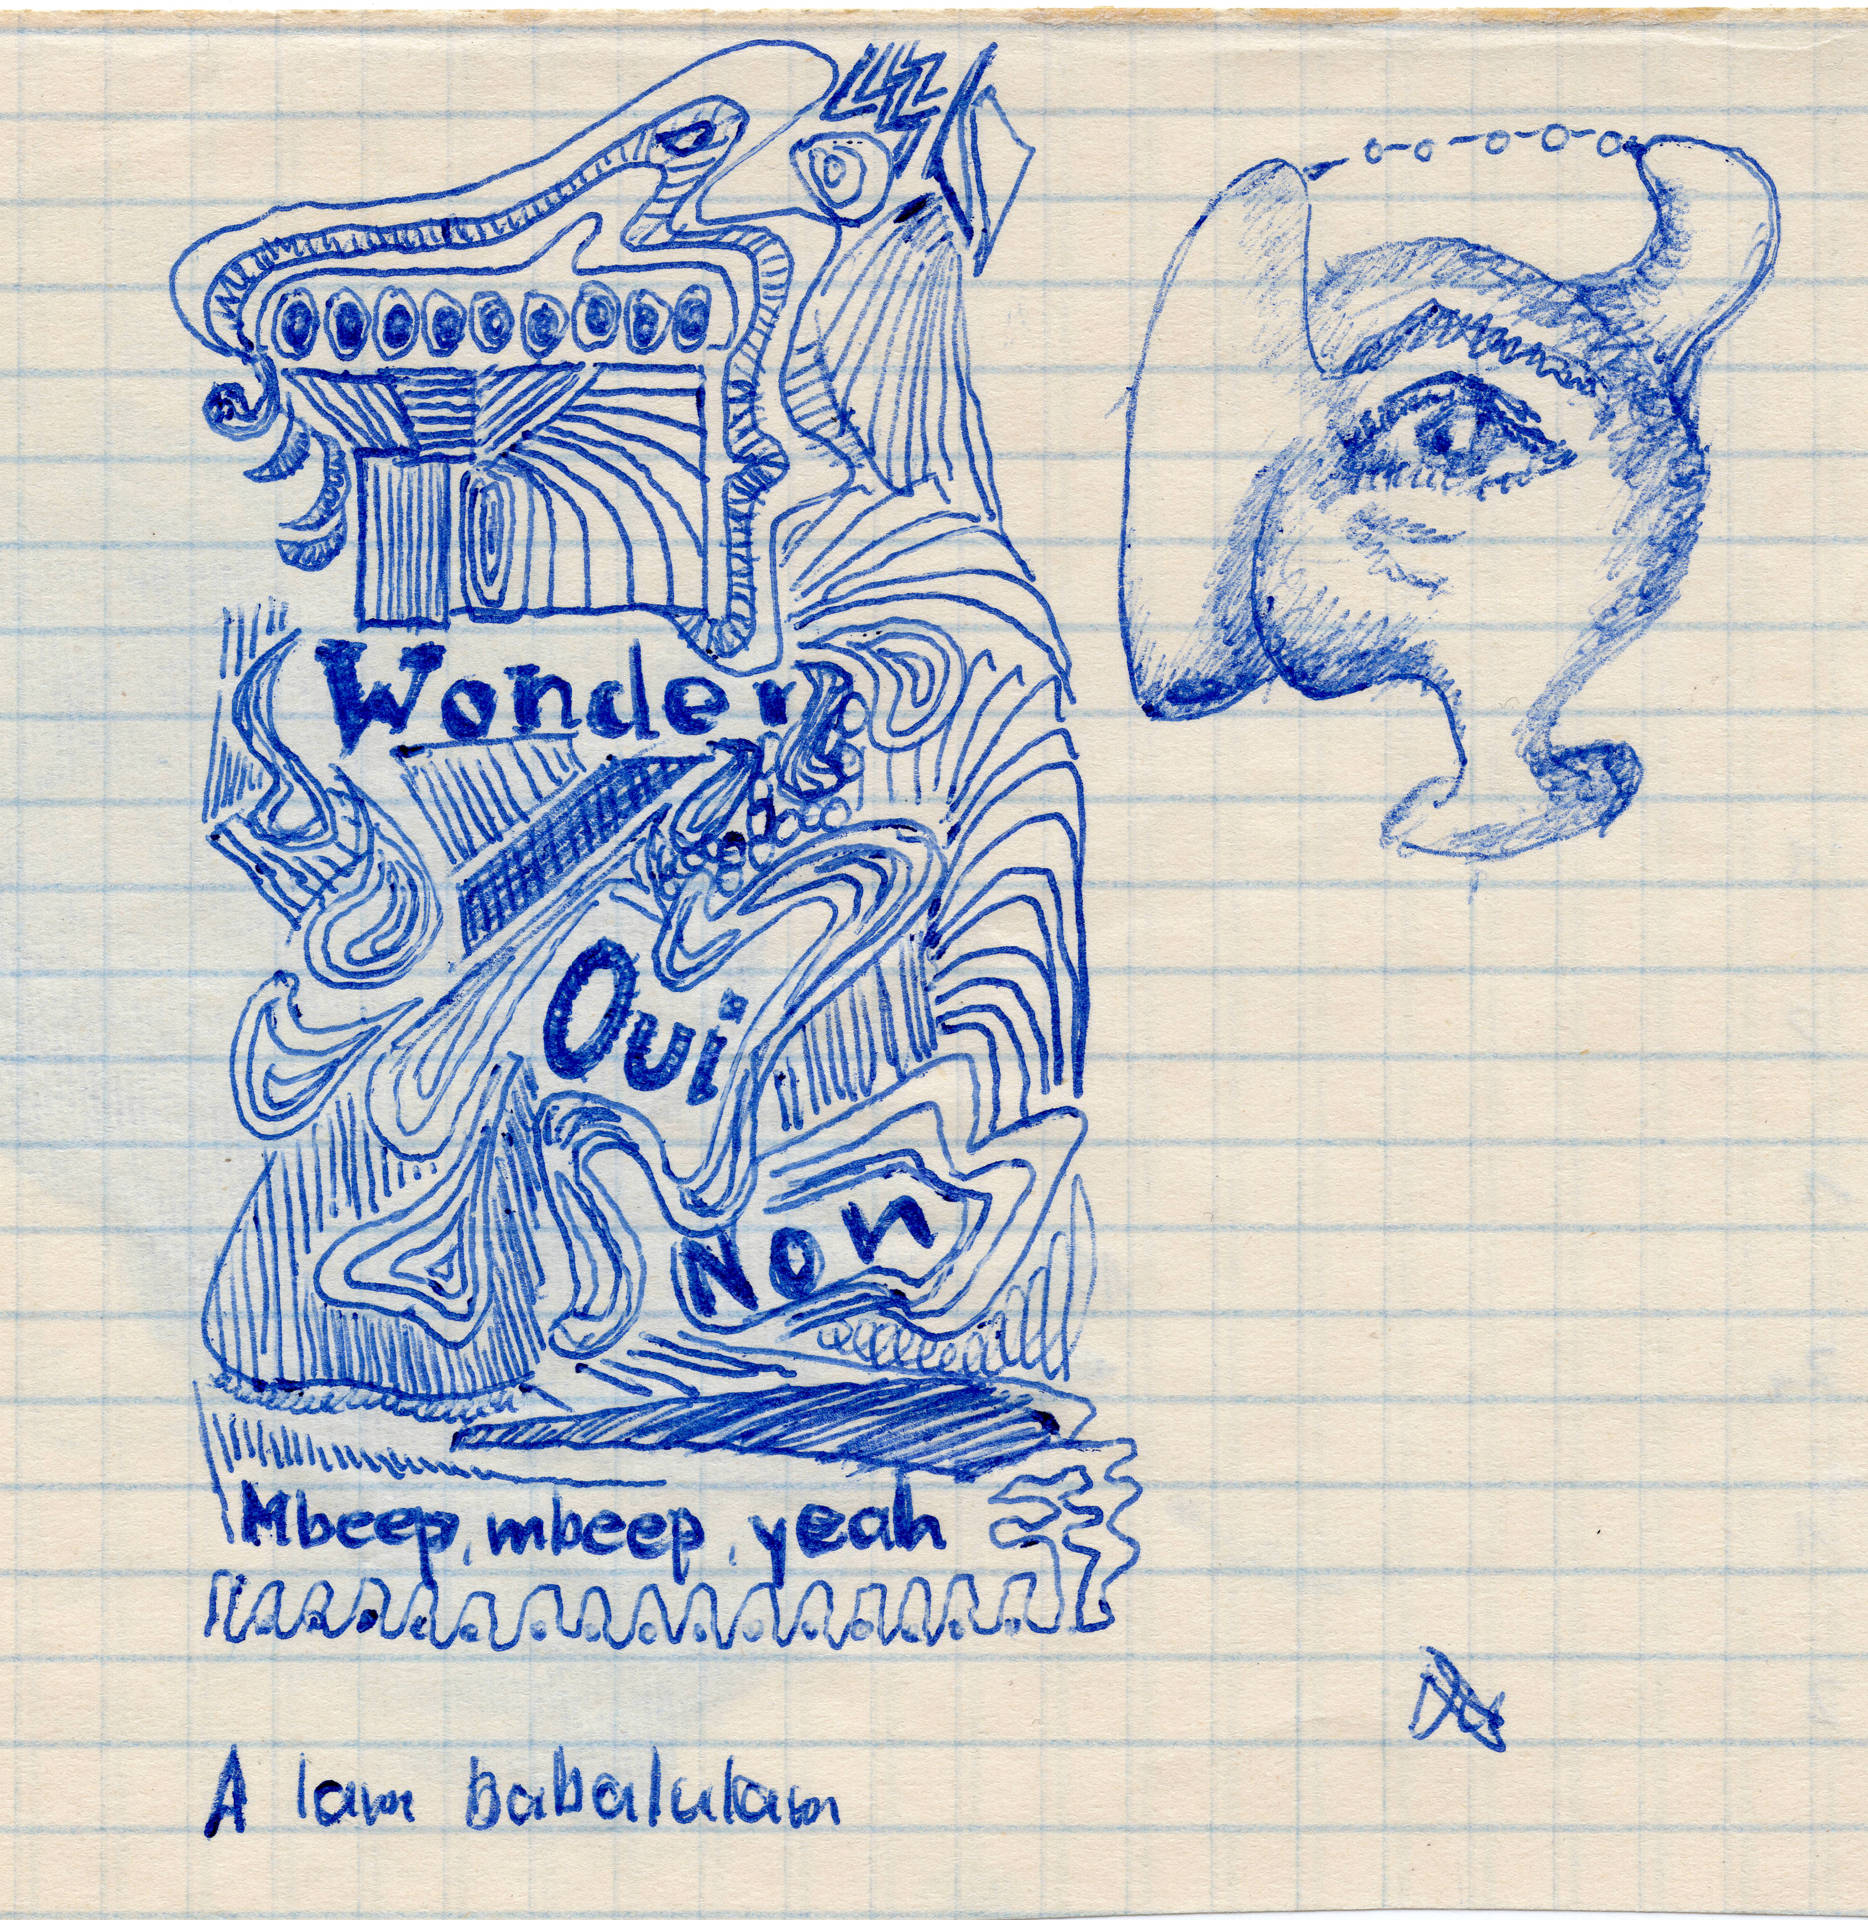 Wonder
Oui
Non
Mbeep, mbeep, yeah
A lam babalulam